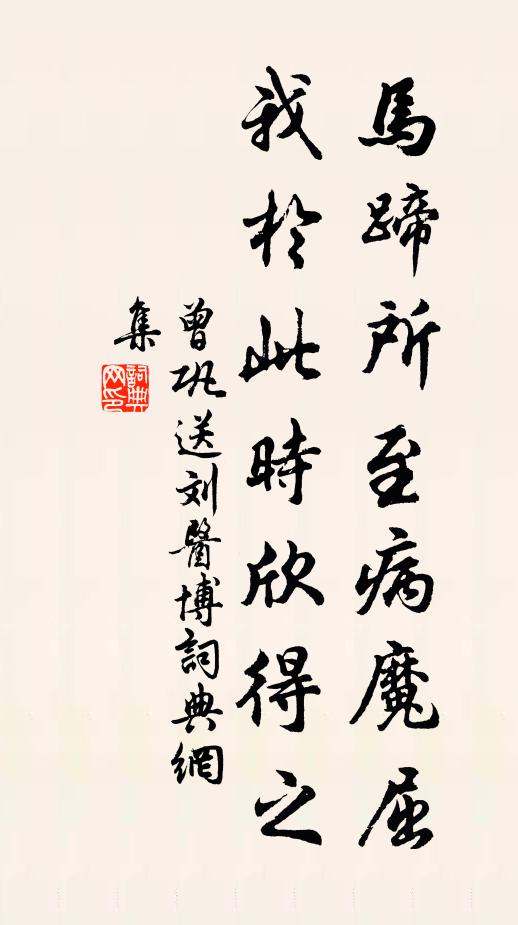 馬蹄所至病魔屈
我於此時欣得之
曾巩送刘醫博詞典網
集
詞典
网印